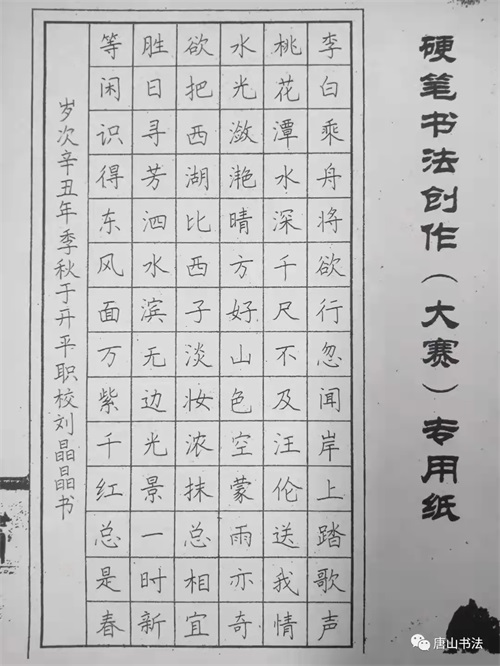 硬笔书法创作（大赛）专用纸
李白乘舟将欲行忽闻岸上踏歌声
桃花潭水深千尺不及汪伦送我情
水光潋滟晴方好山色空蒙雨亦奇
欲把西湖比西子淡妆浓抹总相宜
胜日寻芳泗水滨无边光景一时新
等闲识得东风面万紫千红总是春
岁次辛丑年季秋于开平职校刘晶晶书
唐山书法